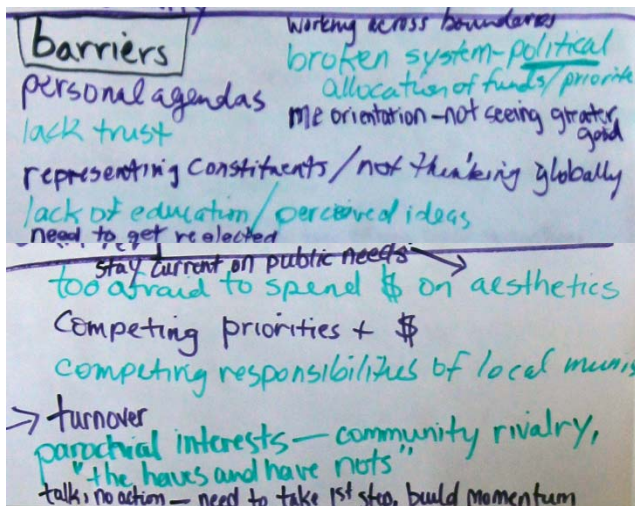 barriers
personal agendas
lack trust
working across boundaries
broken system-political
allocation of funds/priorite
me orientation-not seeing greater
good
representing constituents/not thinking globally
lack of education/perceived ideas
need to get reelected
stay current on public needs
too afraid to spend $ on aesthetics
Competing priorities + $
competing responsibilities of local munis
→ turnover
parochial interests — community rivalry,
"the haves and have nots"
talk, no action — need to take 1st step, build momentum